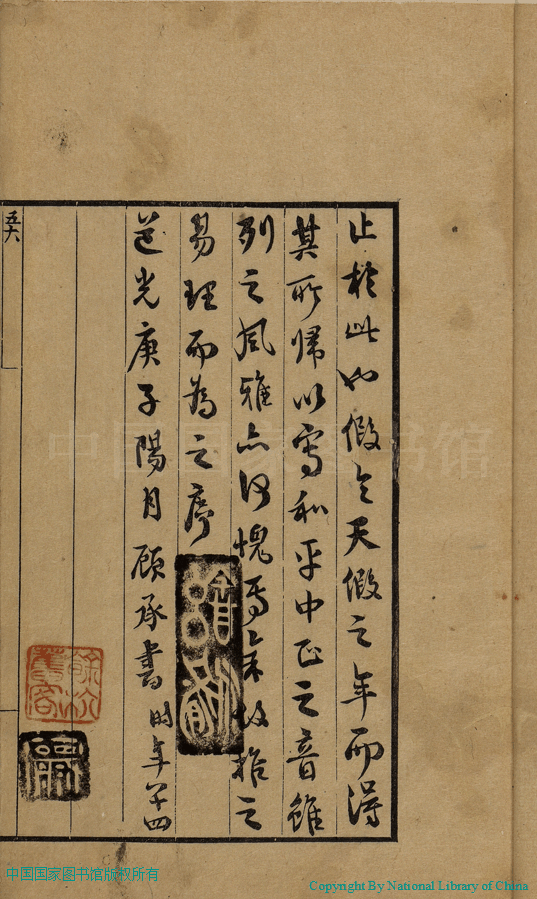 止於此也假令天假之年而得
其所歸以寫和平中正之音雖
列之風雅亦何愧焉余故推之
易理而為之序
道光庚子陽月顧承書時年十四
五六
中国国家图书馆
中国国家图书馆版权所有
Copyright By National Library of China